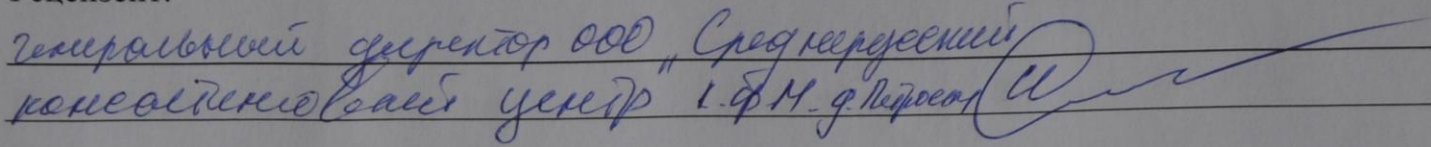 генеральный директор ООО „Среднерусский
консалтинговый центр